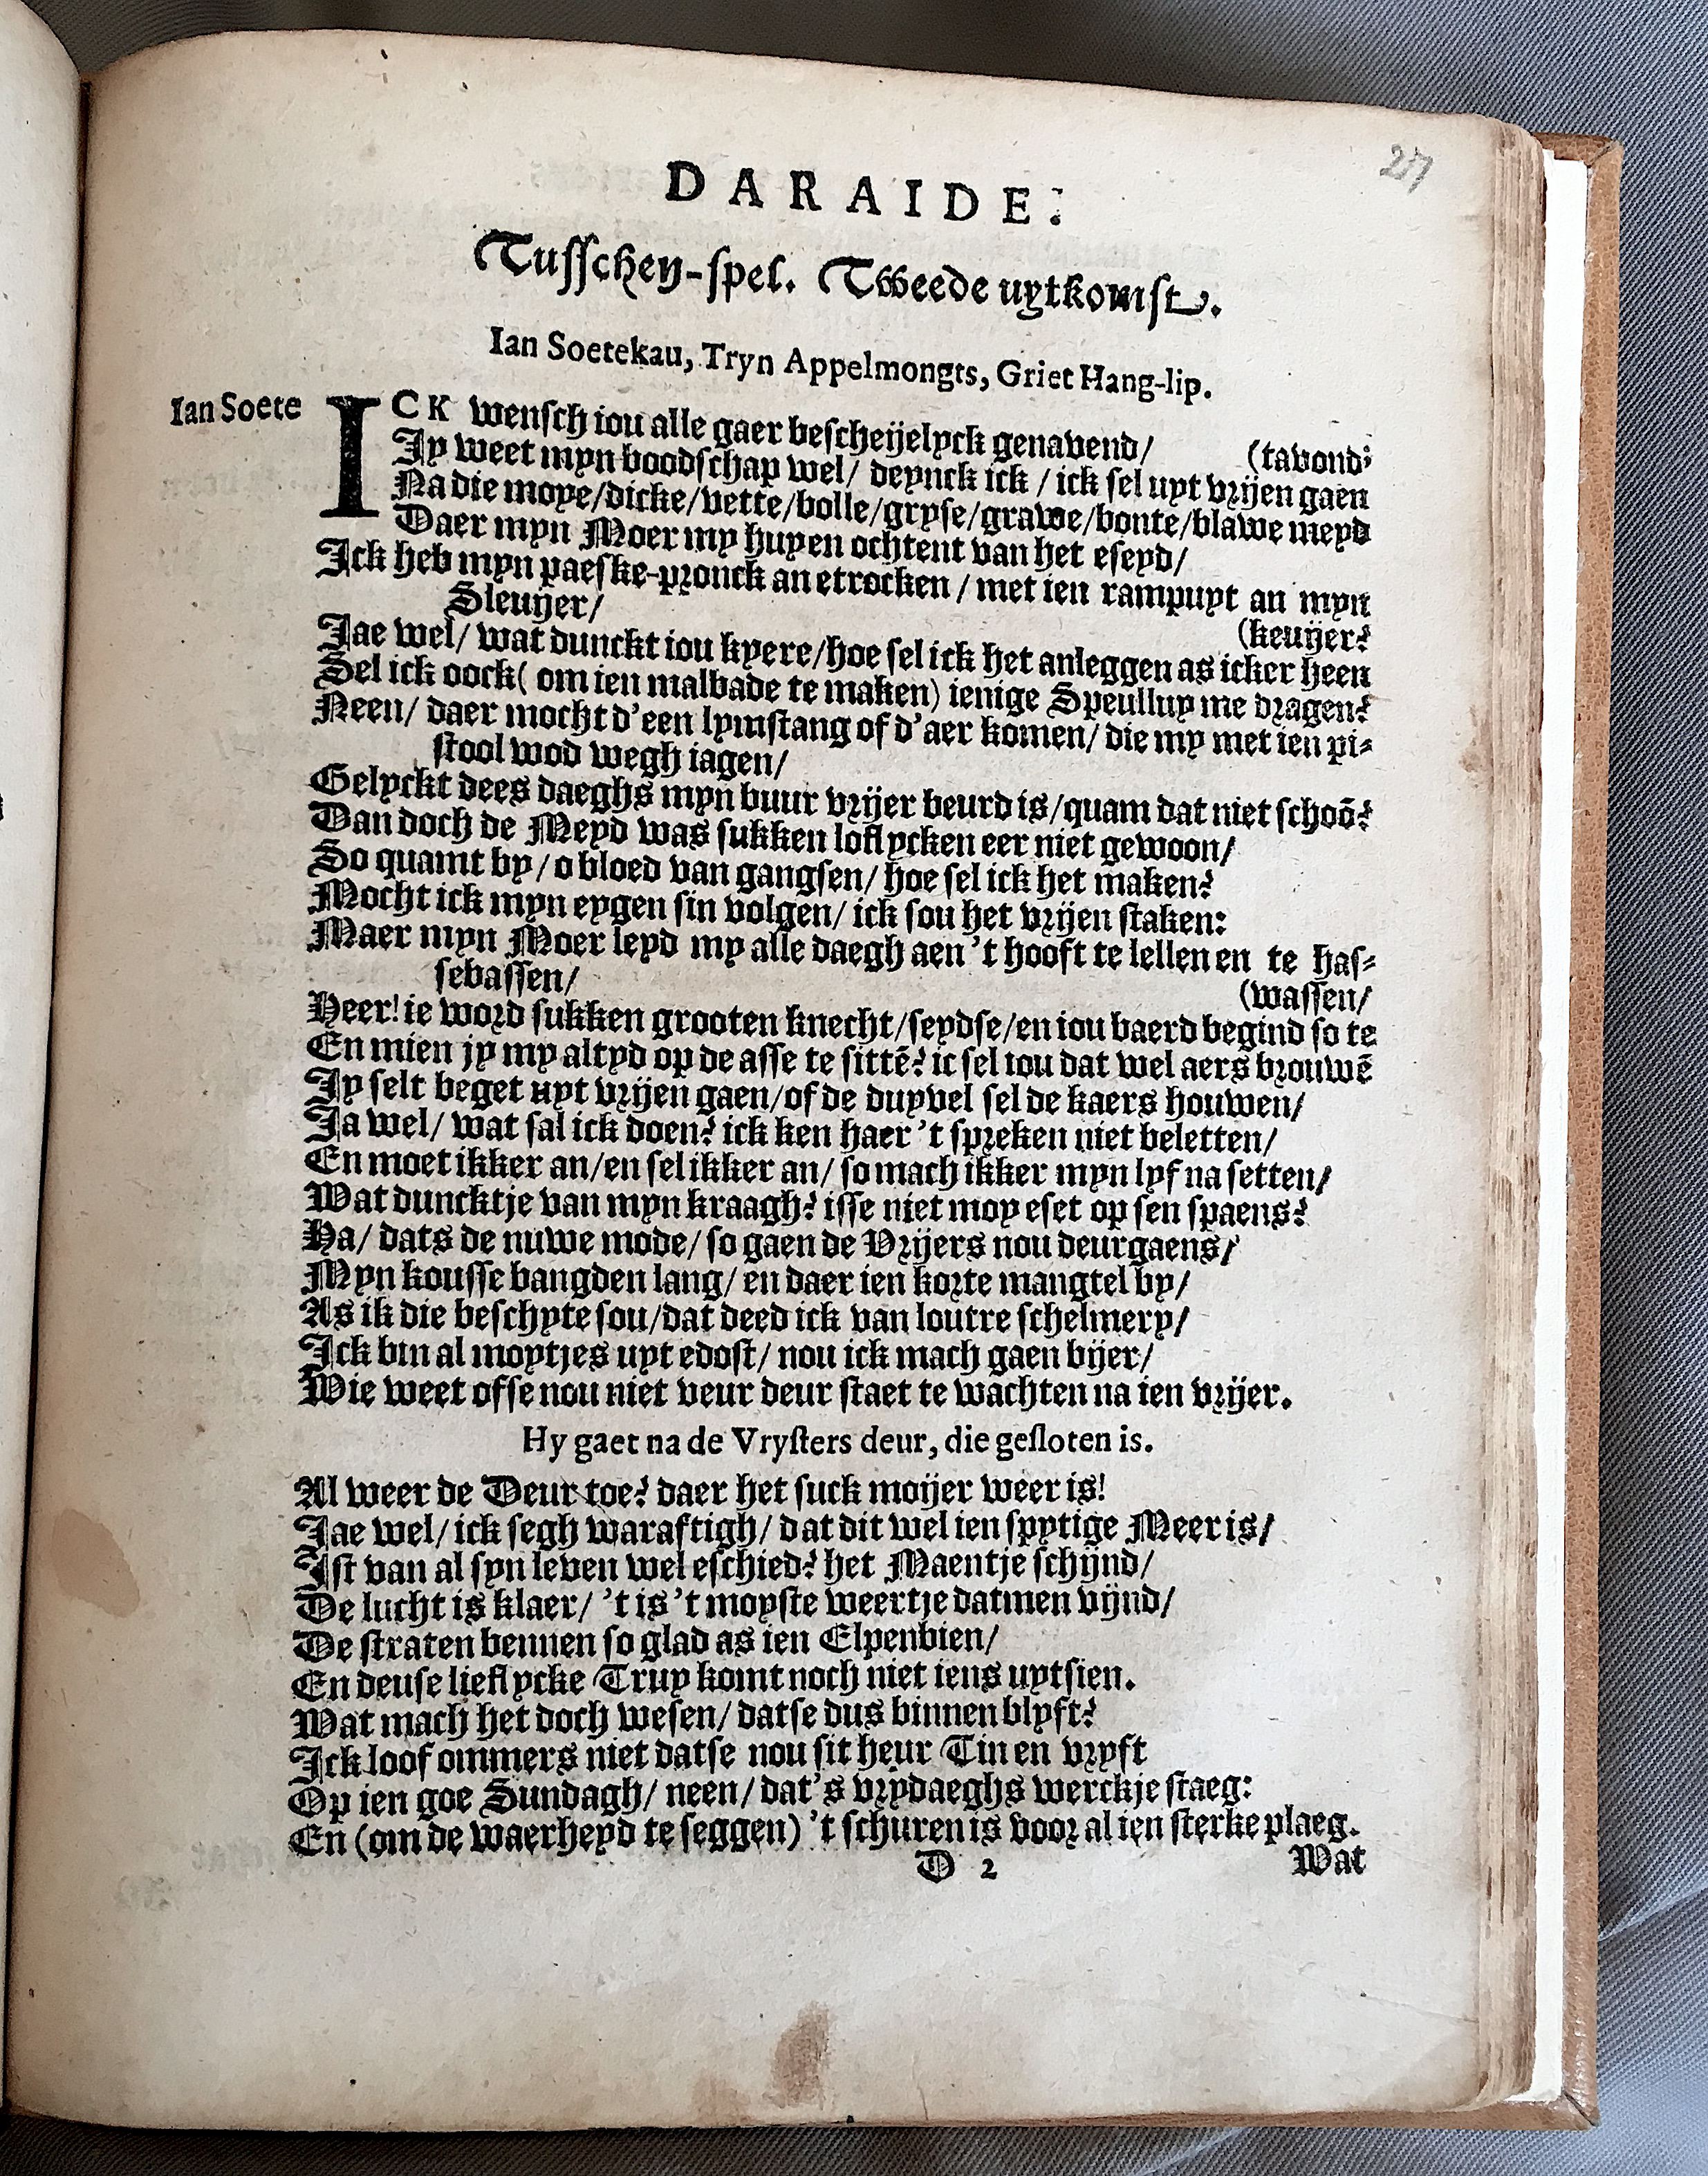 27
DARAIDE.
Tusschen-spel. Tweede uytkomst.
Ian Soetekau, Tryn Appelmongts, Griet Hang-lip.
Ian Soete
ICK wensch iou alle gaer bescheyelyck genavend/
(tavond;
Iy weet myn boodschap wel/ deynck ick / ick sel uyt vrijen gaen
Na die moye/dicke/vette/bolle/gryse/grawe/bonte/blawe meyd
Daer myn Moer my huyen ochtent van het eseyd/
Ick heb myn paeske-pronck an etrocken / met ien rampuyt an myn
Sleuyer/
(keuyer?
Jae wel/ wat dunckt iou kyere/hoe sel ick het anleggen as icker heen
Sel ick oock( om ien malbade te maken) ienige Speulluy me dragen?
Neen/ daer mocht d'een lymstang of d'aer komen/ die my met ien pi-
stool wod wegh iagen/
Gelyckt dees daeghs myn buur vrijer beurd is/quam dat niet schoō?
Dan doch de Meyd was sukken loflycken eer niet gewoon/
So quamt by/ o bloed van gangsen/ hoe sel ick het maken?
Mocht ick myn eygen sin volgen/ ick sou het vrijen staken:
Maer myn Moer leyd my alle daegh aen 't hooft te lellen en te has-
sebassen/
(wassen/
Heer! ie word sukken grooten knecht/seydse/en iou baerd begind so te
En mien jy my altyd op de asse te sittē? ic sel iou dat wel aers brouwē
Iy selt beget uyt vrijen gaen/of de duyvel sel de kaers houwen/
Ja wel/ wat sal ick doen? ick ken haer 't spreken niet beletten/
En moet ikker an/en sel ikker an/ so mach ikker myn lyf na setten/
Wat duncktje van myn kraagh? isse niet moy eset op sen spaens?
Ha/ dats de nuwe mode/ so gaen de Vrijers nou deurgaens/
Myn kousse bangden lang/ en daer ien korte mangtel by/
As ik die beschyte sou/dat deed ick van loutre schelmery/
Ick bin al moytjes uyt edost/ nou ick mach gaen bijer/
Wie weet ofse nou niet veur deur staet te wachten na ien vrijer.
Hy gaet na de Vrysters deur, die gesloten is.
Al weer de Deur toe? daer het suck moijer weer is!
Jae wel/ ick segh waraftigh/ dat dit wel ien spytige Meer is/
Ist van al syn leven wel eschied? het Maentje schijnd/
De lucht is klaer/ 't is 't moyste weertje datmen vijnd/
De straten bennen so glad as ien Elpenbien/
En deuse lieflycke Truy komt noch niet iens uytsien.
Wat mach het doch wesen/ datse dus binnen blyft?
Ick loof ommers niet datse nou sit heur Tin en vryft
Op ien goe Sundagh/ neen/ dat's vrydaeghs werckje staeg:
En (om de waerheyd te seggen) 't schuren is voor al ien sterke plaeg.
D 2
Wat